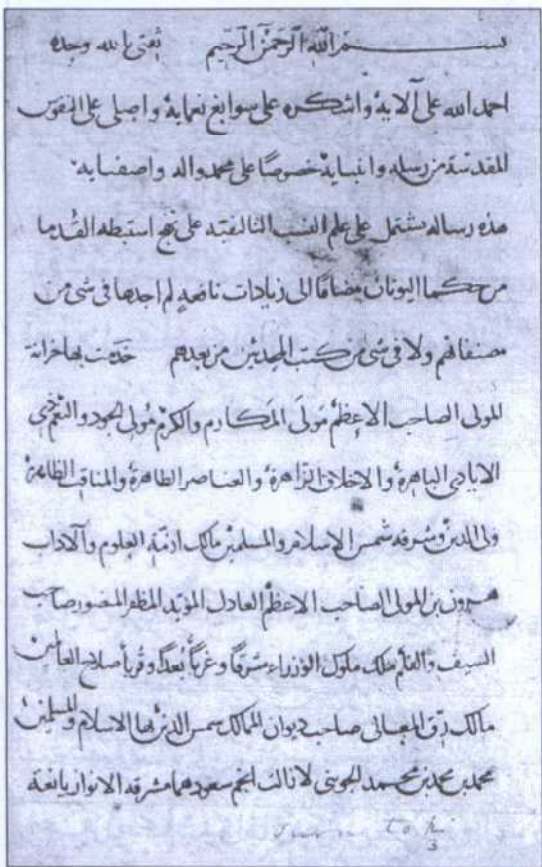 بسم الله الرحمن الرحيم ثقتي بالله وحده
احمد الله على آلايه واشكره على سوابغ نعمايه واصلي على النفوس
المقدسة من رسله وانبيايه خصوصا على محمد واله واصفيايه
هذه رساله تشتمل على علم النسب التاليفيه على نهج استنبطه القدما
من حكما اليونان مضافا الى زيادات نافعه لم اجدها في شي من
مصنفاتهم ولا في شي من كتب المحدثين من بعدهم خدمت بها خزانة
المولى الصاحب الاعظم مولى المكارم والكرم مولى الجود والنعم ذي
الايادي الباهرة والاخلاق الزاهرة والعناصر الطاهرة والمناقب الظاهرة
ولى الدين وشرفه شمس الاسلام والمسلمين مالك ازمة العلوم والاداب
هرون بن المولى الصاحب الاعظم العادل المؤيد المظفر المنصور صاحب
السيف والقلم ملك ملوك الوزراء شرقا وغربا بعدا وقربا صلاح العالمين
مالك رق المعالى صاحب ديوان الممالك شمس الدين بها الاسلام والمسلمين
محمد بن محمد بن محمد الجويني لا زالت انجم سعودهما مشرقه الانوار يانعة
3